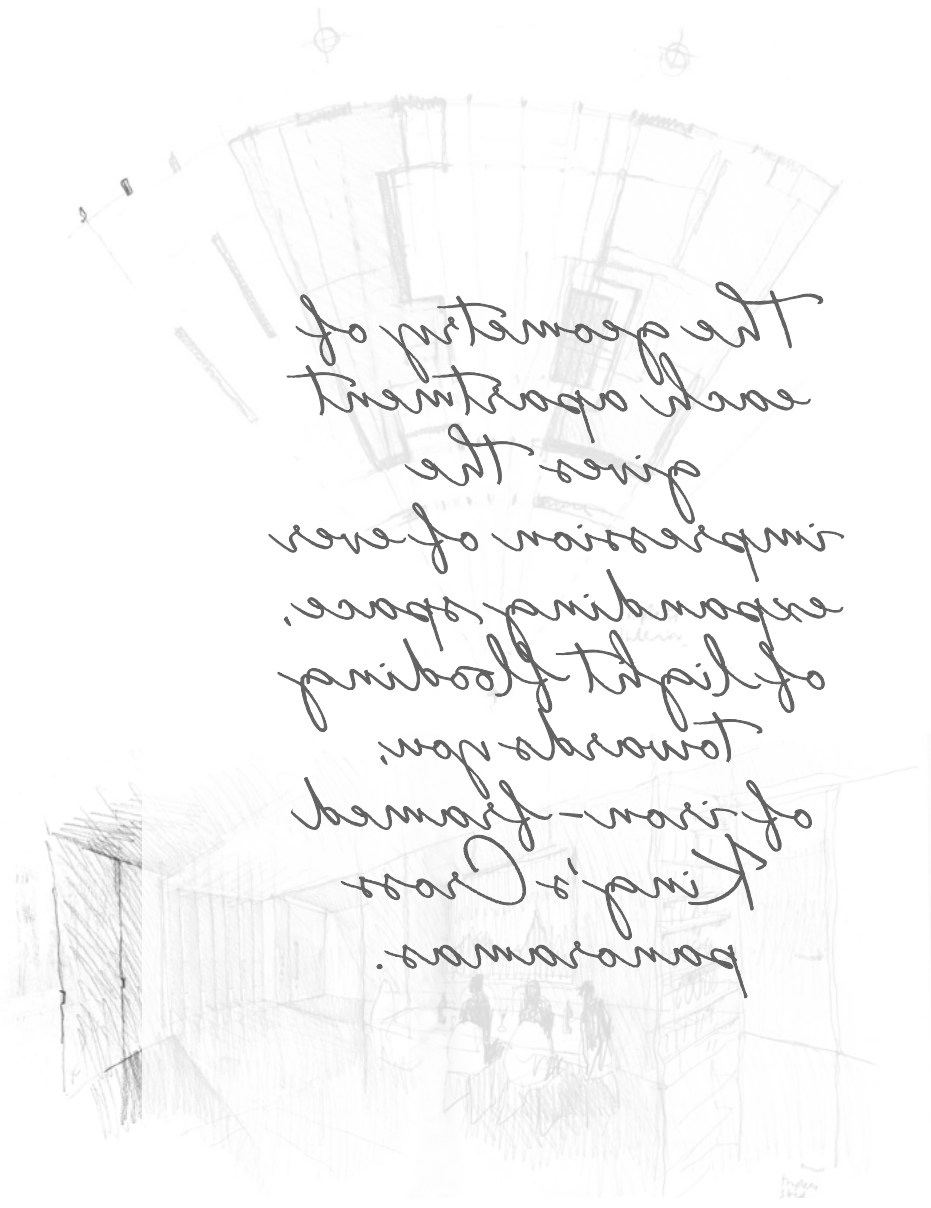 The geometry of
each apartment
gives the
impression of ever
expanding space,
of light flooding
towards you,
of iron-framed
King's Cross
panoramas.